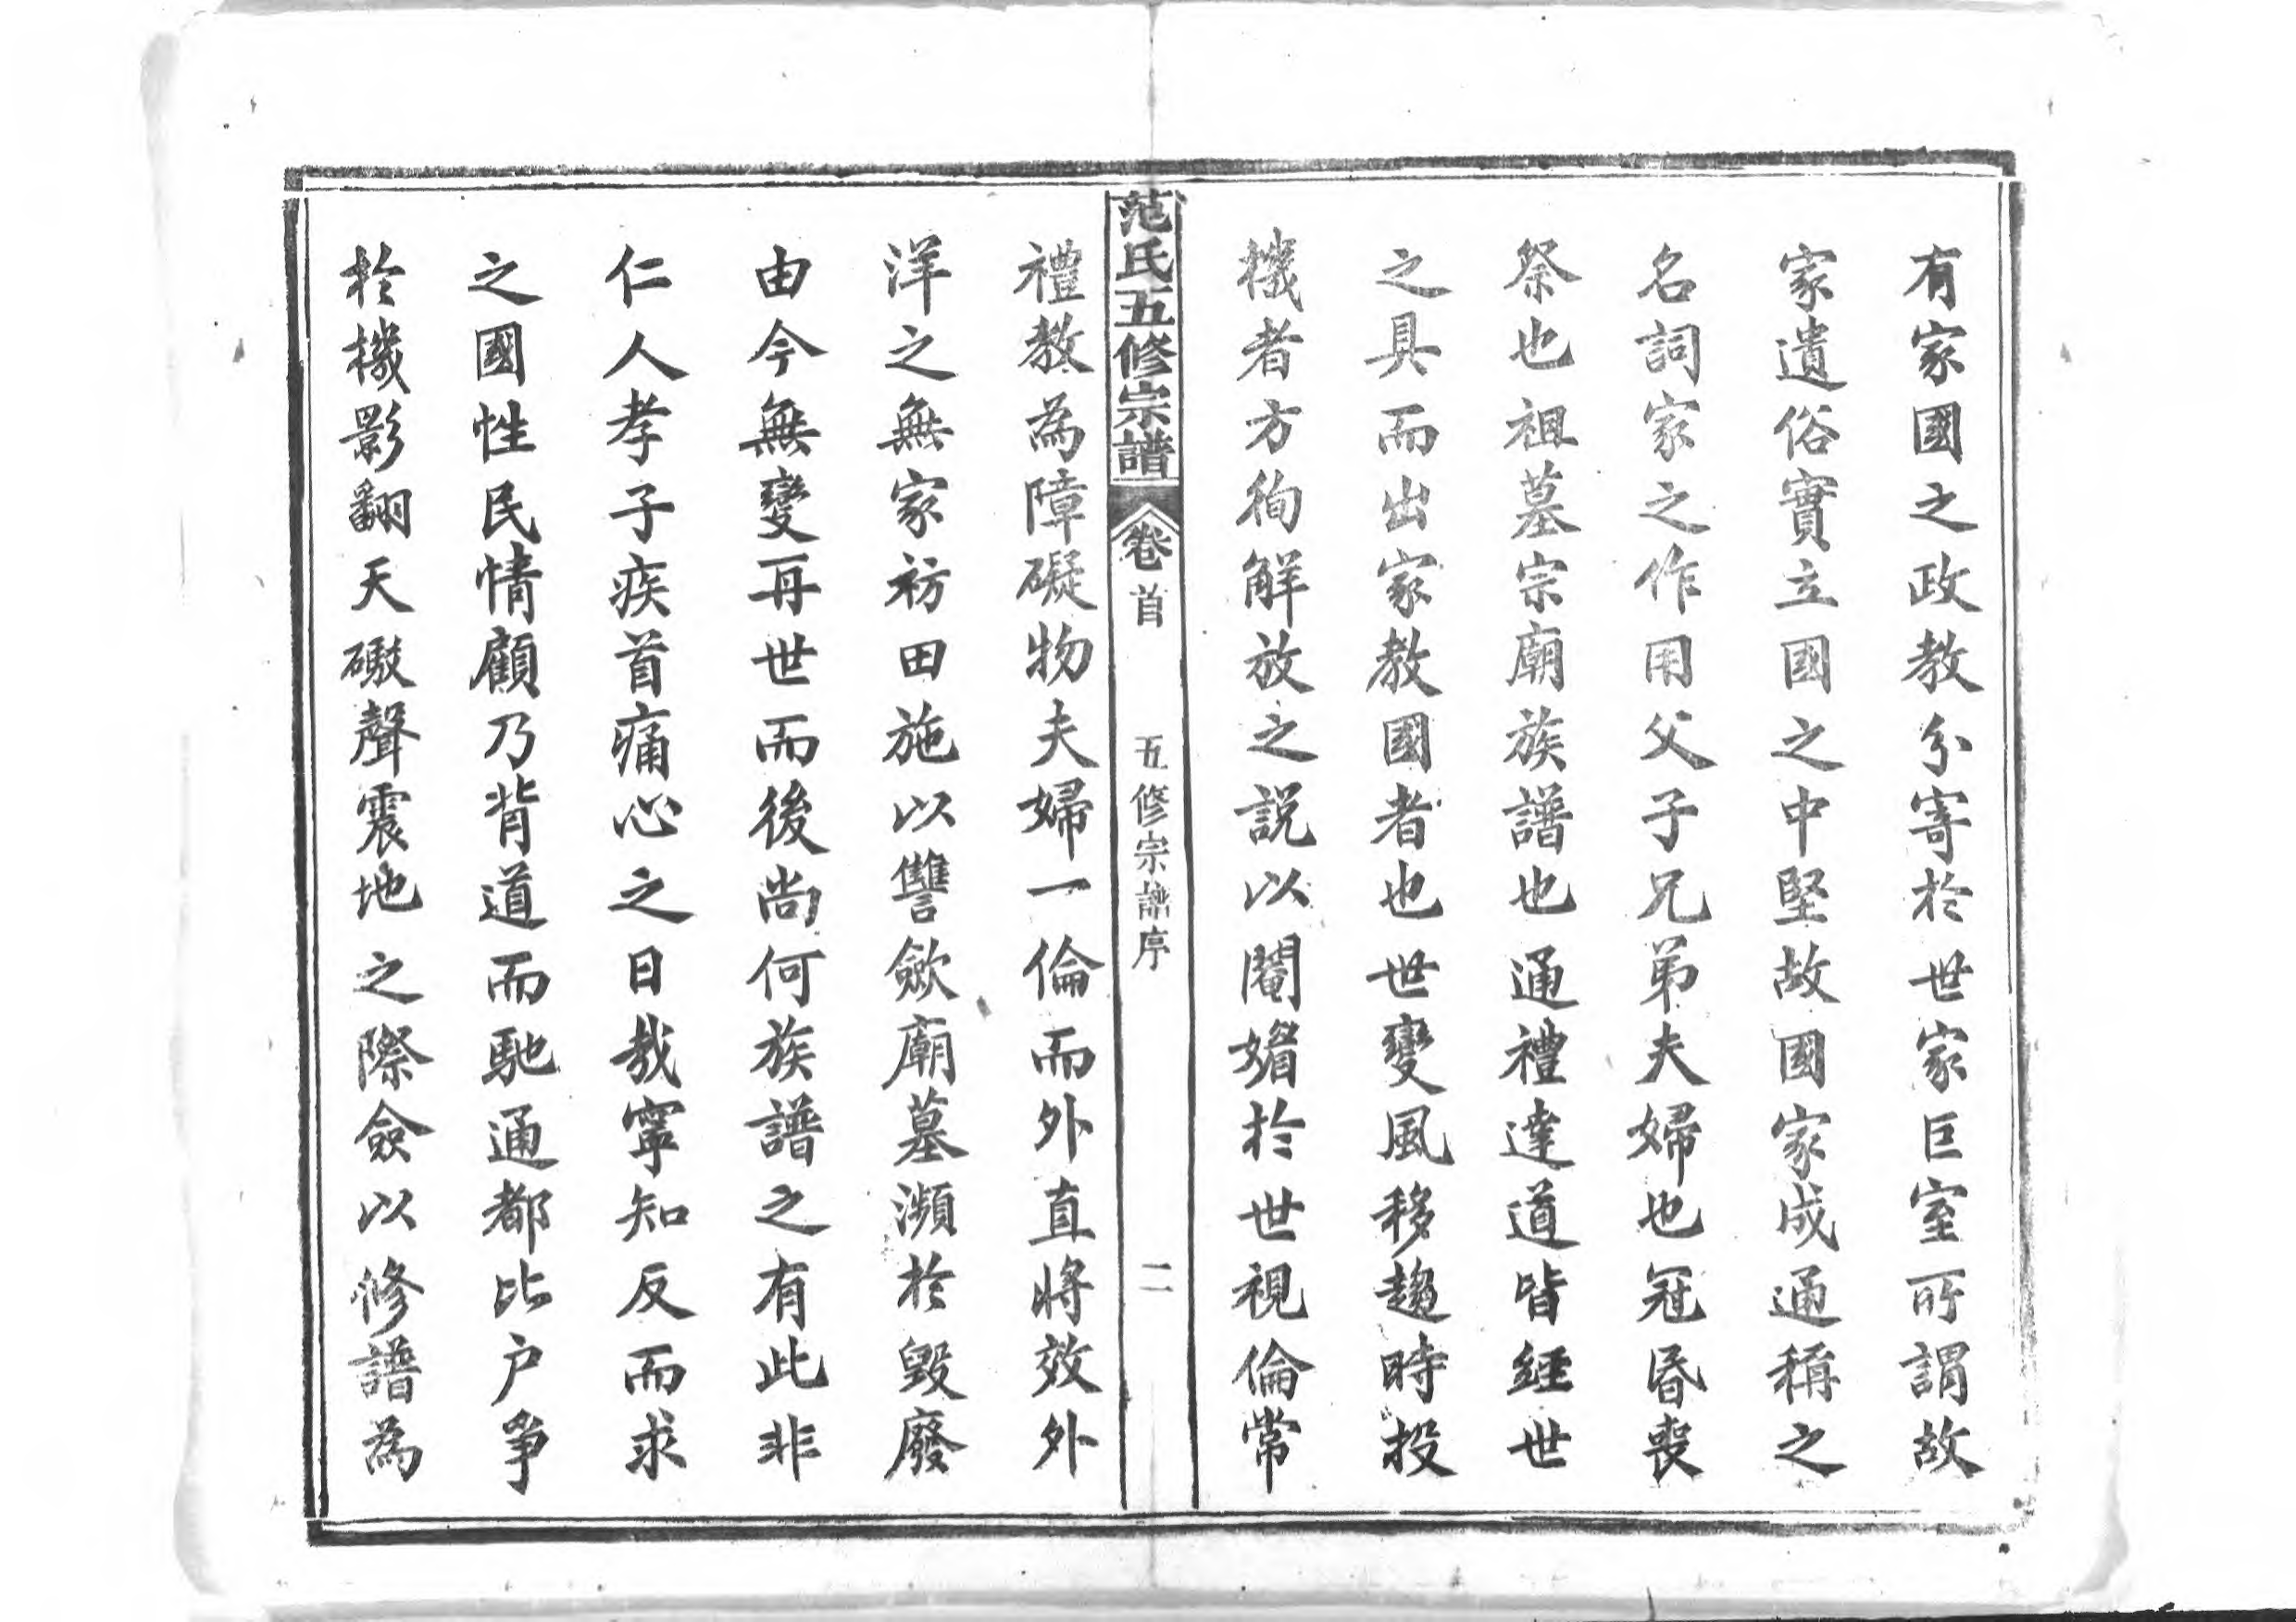 有家國之政教分寄於世家巨室所謂故
家遺俗實立國之中堅故國家成通稱之
名詞家之作用父子兄弟夫婦也冠昏喪
祭也祖墓宗廟族譜也通禮達道皆經世
之具而出家教國者也世變風移趨時投
機者方徇解放之説以閹媚於世視倫常
范氏五修宗譜 卷首 五修宗譜序 二
禮教為障礙物夫婦一倫而外直將效外
洋之無家祊田施以讐歛廟墓瀕於毀廢
由今無變再世而後尚何族譜之有此非
仁人孝子疾首痛心之日哉寧知反而求
之國性民情顧乃背道而馳通都比户爭
於機影翻天礮聲震地之際僉以修譜為